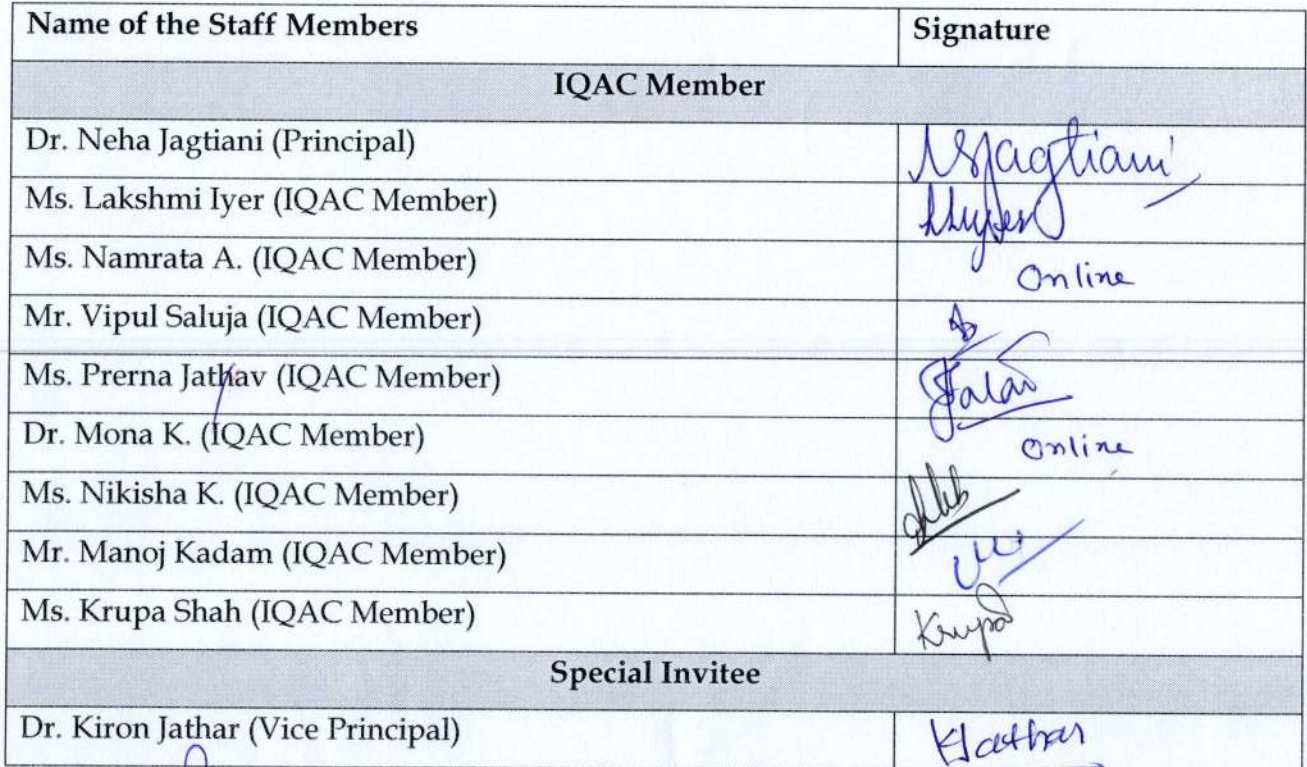 Name of the Staff Members Signature
IQAC Member
Dr. Neha Jagtiani (Principal) NSJagtiani
Ms. Lakshmi Iyer (IQAC Member)
Ms. Namrata A. (IQAC Member) Online
Mr. Vipul Saluja (IQAC Member)
Ms. Prerna Jathav (IQAC Member)
Dr. Mona K. (IQAC Member) Online
Ms. Nikisha K. (IQAC Member)
Mr. Manoj Kadam (IQAC Member)
Ms. Krupa Shah (IQAC Member) Krupa
Special Invitee
Dr. Kiron Jathar (Vice Principal) KJathar